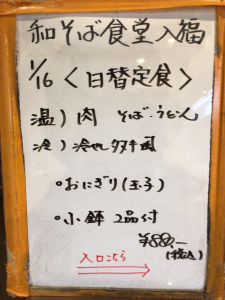 和そば食堂入福
1/16〈日替定食〉
温）肉 そば・うどん
冷）冷やしタヌキ風
•おにぎり(玉子)
•小鉢 2品付
¥880,-
(税込)
入口こちら